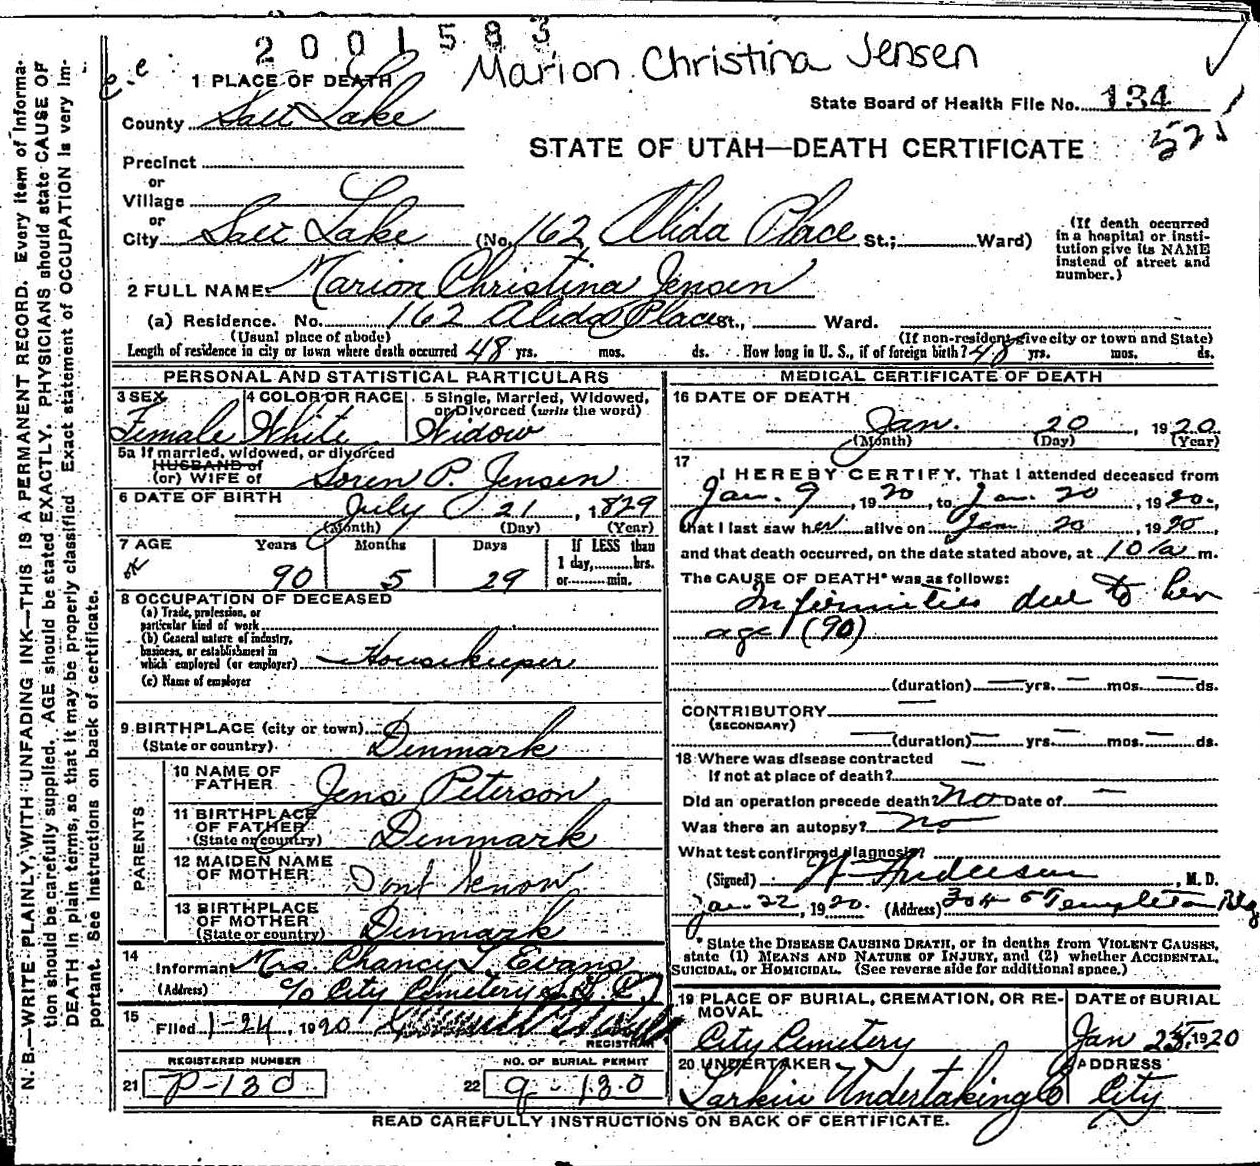 2001583
Marion Christina Jensen
1 PLACE OF DEATH
State Board of Health File No. 134
County Salt Lake
STATE OF UTAH—DEATH CERTIFICATE
Precinct
or
Village
or
City Salt Lake (No. 162 Alida Place St.; Ward)
(If death occurred
in a hospital or insti-
tution give its NAME
instead of street and
number.)
2 FULL NAME Marion Christina Jensen
(a) Residence. No. 162 Alida Place St., Ward.
(Usual place of abode) (If non-resident give city or town and State)
Length of residence in city or town where death occurred 48 yrs. mos. ds. How long in U. S., if of foreign birth? 48 yrs. mos. ds.
PERSONAL AND STATISTICAL PARTICULARS
3 SEX 4 COLOR OR RACE 5 Single, Married, Widowed,
or Divorced (write the word)
Female White Widow
5a If married, widowed, or divorced
HUSBAND of
(or) WIFE of Soren P. Jensen
6 DATE OF BIRTH July 21, 1829
(Month) (Day) (Year)
7 AGE Years Months Days If LESS than
1 day, hrs.
or min.
90 5 29
8 OCCUPATION OF DECEASED
(a) Trade, profession, or
particular kind of work
(b) General nature of industry,
business, or establishment in
which employed (or employer) Housekeeper
(c) Name of employer
9 BIRTHPLACE (city or town)
(State or country) Denmark
PARENTS
10 NAME OF
FATHER Jens Peterson
11 BIRTHPLACE
OF FATHER
(State or country) Denmark
12 MAIDEN NAME
OF MOTHER Dont Know
13 BIRTHPLACE
OF MOTHER
(State or country) Denmark
14
Informant Mrs. Chancy L. Evans
(Address) c/o City Cemetery S. L. C.
15
Filed 1-24, 1920
REGISTRAR
REGISTERED NUMBER NO. OF BURIAL PERMIT
21 P-130 22 9-130
MEDICAL CERTIFICATE OF DEATH
16 DATE OF DEATH
Jan. 20, 1920
(Month) (Day) (Year)
17
I HEREBY CERTIFY, That I attended deceased from
Jan. 9, 1920, to Jan. 20, 1920.,
that I last saw her alive on Jan 20, 1920,
and that death occurred, on the date stated above, at 10/a m.
The CAUSE OF DEATH* was as follows:
Infirmities due to her
age (90)
(duration) yrs. mos. ds.
CONTRIBUTORY
(SECONDARY)
(duration) yrs. mos. ds.
18 Where was disease contracted
if not at place of death?
Did an operation precede death? No Date of
Was there an autopsy? no
What test confirmed diagnosis?
(Signed) Anderson, M. D.
Jan. 22, 1920. (Address) Templeton Bldg
* State the DISEASE CAUSING DEATH, or in deaths from VIOLENT CAUSES,
state (1) MEANS AND NATURE OF INJURY, and (2) whether ACCIDENTAL,
SUICIDAL, or HOMICIDAL. (See reverse side for additional space.)
19 PLACE OF BURIAL, CREMATION, OR RE-
MOVAL DATE of BURIAL
City Cemetery Jan 1920
20 UNDERTAKER ADDRESS
Larkin Undertaking Co City
READ CAREFULLY INSTRUCTIONS ON BACK OF CERTIFICATE.
N. B.—WRITE PLAINLY, WITH UNFADING INK—THIS IS A PERMANENT RECORD. Every item of informa-
tion should be carefully supplied. AGE should be stated EXACTLY. PHYSICIANS should state CAUSE OF
DEATH in plain terms, so that it may be properly classified. Exact statement of OCCUPATION is very im-
portant. See instructions on back of certificate.